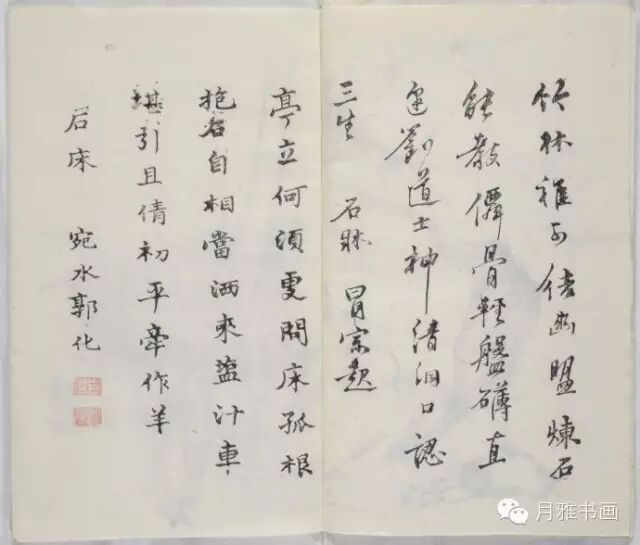 竹林雅 幽盟煉石
能教僊骨輕盤礴直
劉道士神清洞口認
三生 石牀 冒宗起
亭立何須更問床孤根
抱石自相當洒來盜汁車
堪引且倩初平牽作羊
石床 宛水郭化
月雅书画